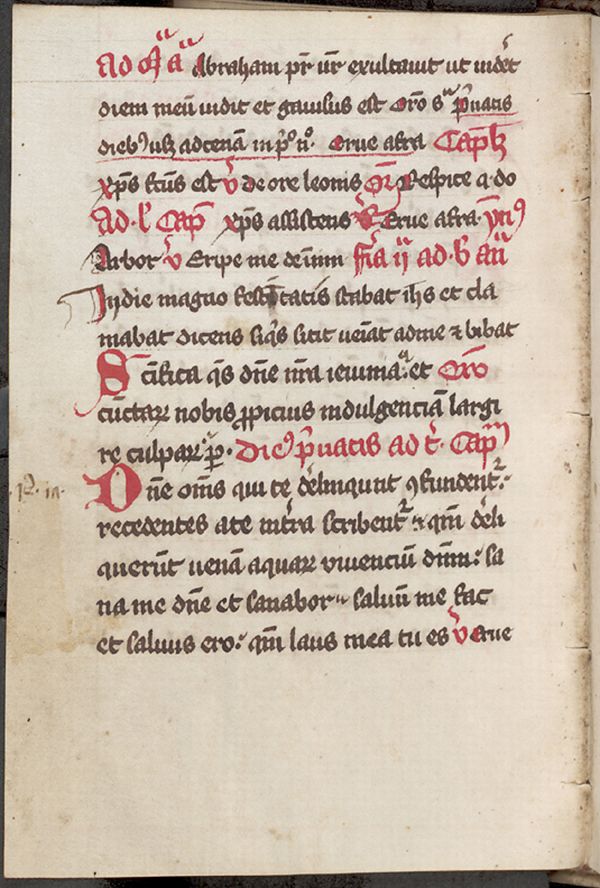 Ad mª aª Abraham pr̄ ur̄ exultauit ut uidēt
diem meū uidit et gauisus est Oro sª p̄uatis
dieb9 usz ad cenā in pº nº. Erue a fra Cap̄lz
xp̄s scūs est v̄ de ore leonis Or̄o Respice q do
Ad .l' Cap̄ xp̄s assistens R Erue a fra ȳn9
Arbor v̄ Eripe me de inim fr̄ia ij ad .b' an̄
In die magno festitatis stabat ih̄s et cla
mabat dicens siq̄s sitit ueiat ad me ⁊ bibat
Scīfica q̄s dn̄e nr̄a ieiunia: et Oro
cūctaꝝ nobis ꝓpicius indulgenciā largi
re culpaꝝ p̄. Die9 p̄uatis ad t̄. Cap̄m
Dn̄e om̄s qui te d̄elinqunt ꝯfundent᷑:
recedentes a te in t̄ra scribent᷑ ⁊ qm̄ d̄eli
querūt uenā aquaꝝ viuenciū dnm̄: sa
na me dn̄e et sanabor saluū me fac
et saluus ero: qm̄ laus mea tu es v̄ Erue